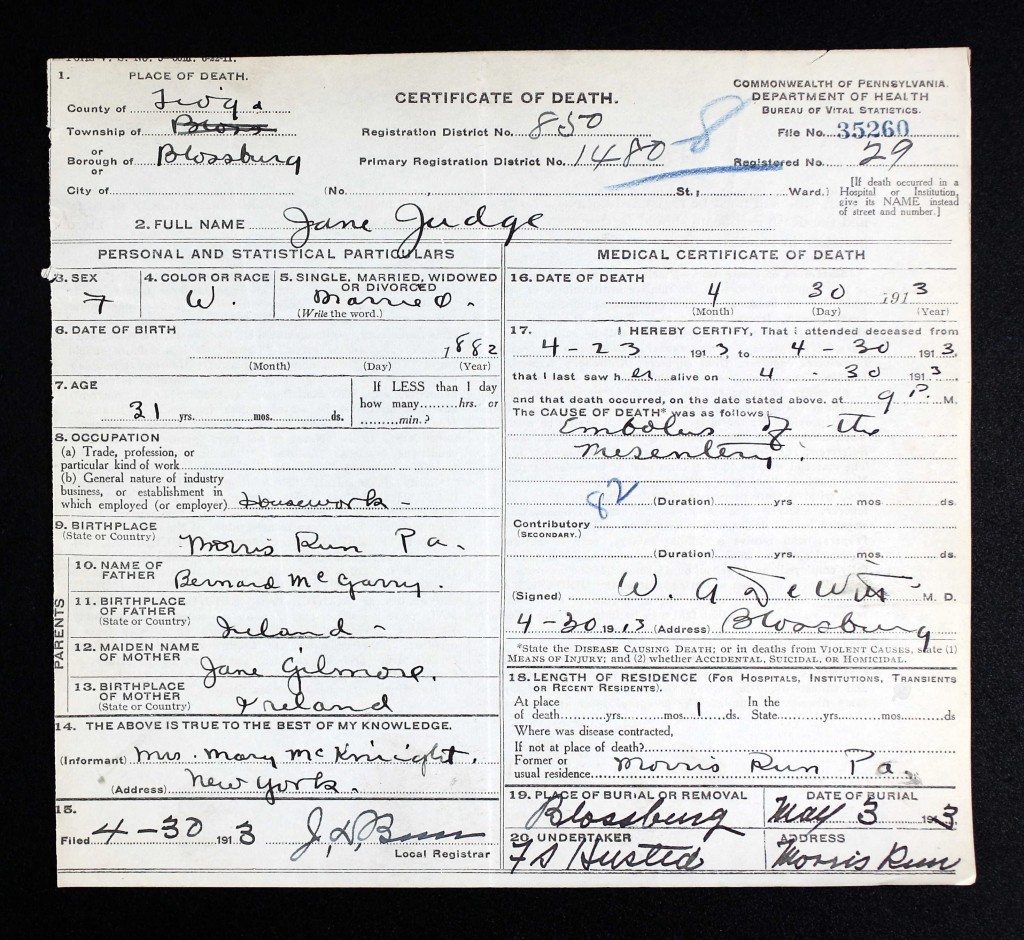 1. PLACE OF DEATH.
County of Tioga
Township of Bloss
or
Borough of Blossburg
or
City of
CERTIFICATE OF DEATH.
Registration District No. 850
Primary Registration District No. 1480
8
(No. , St., Ward.)
COMMONWEALTH OF PENNSYLVANIA.
DEPARTMENT OF HEALTH
BUREAU OF VITAL STATISTICS.
File No. 35260
Registered No. 29
[If death occurred in a
Hospital or Institution,
give its NAME instead
of street and number.]
2. FULL NAME Jane Judge
PERSONAL AND STATISTICAL PARTICULARS
3. SEX
F
4. COLOR OR RACE
W.
5. SINGLE, MARRIED, WIDOWED
OR DIVORCED
Married.
(Write the word.)
6. DATE OF BIRTH
1882
(Month) (Day) (Year)
7. AGE
31 yrs. mos. ds.
If LESS than 1 day
how many hrs. or
min.?
8. OCCUPATION
(a) Trade, profession, or
particular kind of work
(b) General nature of industry
business, or establishment in
which employed (or employer) Housework -
9. BIRTHPLACE
(State or Country) Morris Run Pa.
PARENTS
10. NAME OF
FATHER Bernard McGarry.
11. BIRTHPLACE
OF FATHER
(State or Country) Ireland -
12. MAIDEN NAME
OF MOTHER Jane Gilmore.
13. BIRTHPLACE
OF MOTHER
(State or Country) Ireland
14. THE ABOVE IS TRUE TO THE BEST OF MY KNOWLEDGE.
(Informant) Mrs. Mary McKnight.
(Address) New York.
15.
Filed 4-30 1913
Local Registrar
MEDICAL CERTIFICATE OF DEATH
16. DATE OF DEATH
4 30 1913
(Month) (Day) (Year)
17. I HEREBY CERTIFY, That I attended deceased from
4-23 1913 to 4-30 1913,
that I last saw her alive on 4-30 1913.
and that death occurred, on the date stated above, at 9 P. M.
The CAUSE OF DEATH* was as follows:
Embolus of the
mesentery.
82
(Duration) yrs mos ds.
Contributory
(SECONDARY.)
(Duration) yrs. mos. ds.
(Signed) W. A. DeWitt M. D.
4-30 1913 (Address) Blossburg
*State the DISEASE CAUSING DEATH; or in deaths from VIOLENT CAUSES, state (1)
MEANS OF INJURY; and (2) whether ACCIDENTAL, SUICIDAL, OR HOMICIDAL.
18. LENGTH OF RESIDENCE (FOR HOSPITALS, INSTITUTIONS, TRANSIENTS
OR RECENT RESIDENTS).
At place In the
of death yrs. mos. 1 ds. State yrs. mos. ds
Where was disease contracted,
If not at place of death?
Former or
usual residence Morris Run Pa.
19. PLACE OF BURIAL OR REMOVAL
Blossburg
DATE OF BURIAL
May 3 1913
20. UNDERTAKER
F S Husted
ADDRESS
Morris Run